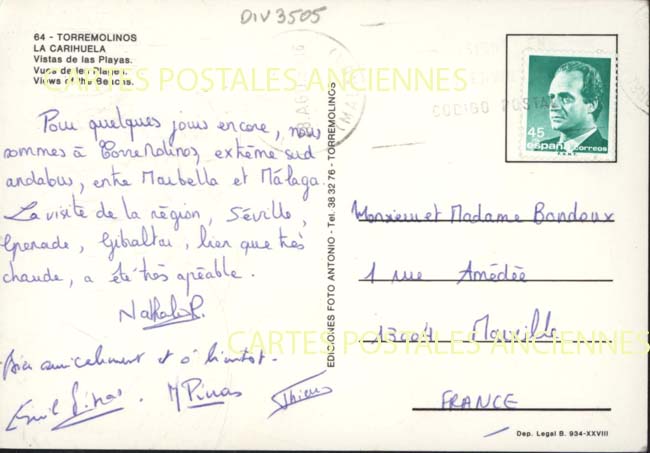 DIV3505
64 - TORREMOLINOS
LA CARIHUELA
Vistas de las Playas.
Vues de les Plages.
Views of the Beachs.
CARTES POSTALES ANCIENNES
CODIGO POSTAL
45
españa correos
F.N.M.T.
Pour quelques jours encore, nous
sommes à Torremolinos, extrême sud
andalous, entre Marbella et Málaga.
La visite de la région, Séville,
Grenade, Gibraltar, bien que très
chaude, a été très agréable.
Nathalie P.
Bien amicalement et à bientôt.
M Pinas
Thierry
EDICIONES FOTO ANTONIO - Tel. 38 32 76 - TORREMOLINOS
Monsieur et Madame Bandoux
1 rue Amédée
13004 Marseille
CARTES POSTALES ANCIENNES
FRANCE
Dep. Legal B. 934-XXVIII